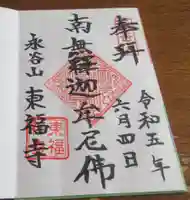 奉拜
令和五年
六月四日
南無釋迦牟尼佛
永谷山
東福寺
東福